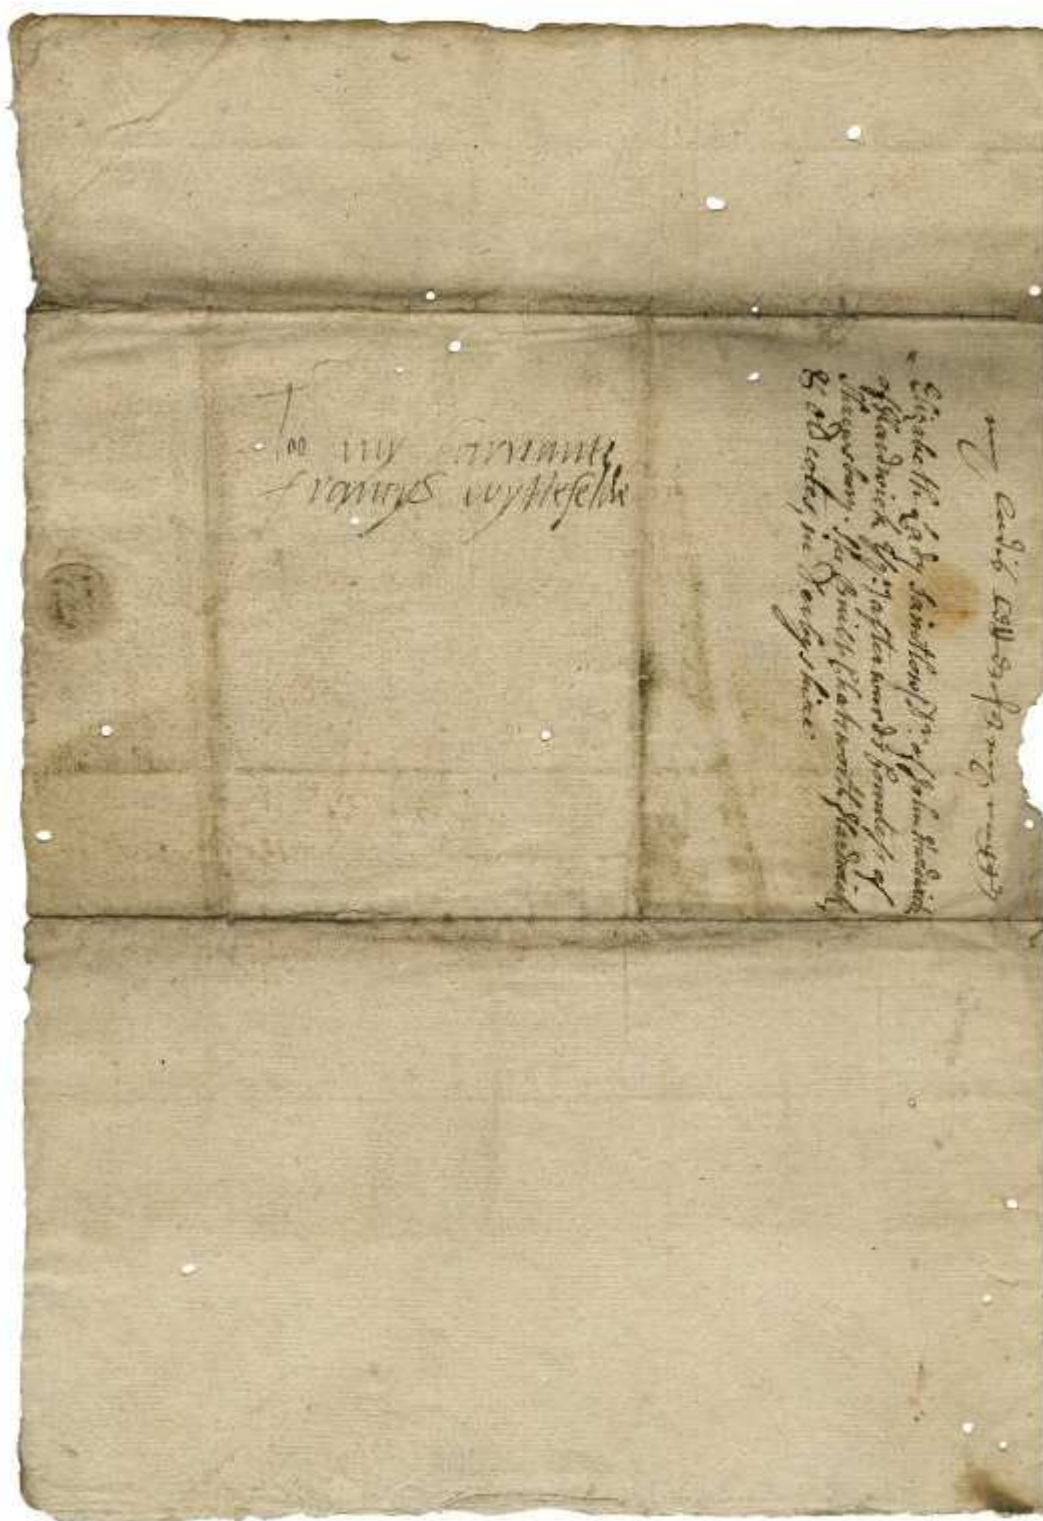 Too my sarvante
francys wytfelde
my Ladis
Elizabeth Lady Saintlow,
of Hardwick Esqr. afterwards Countess of
Shrewsbury. She Built Chatsworth, Hardwick,
& Oldcotes, in Derbyshire